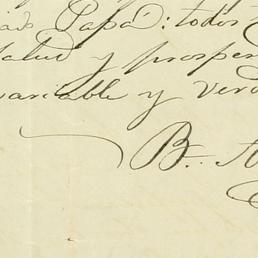 Papá: todos
salud y prosper
variable y verd
B. A